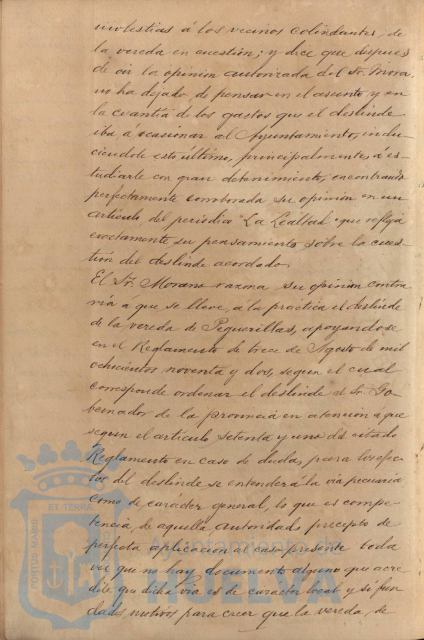 molestias á los vecinos colindantes, de
la vereda en cuestión; y dice que despues
de oir la opinión autorizada del Sr. Mora,
no ha dejado de pensar en el asunto y en
la cuantía de los gastos que el deslinde
iba á ocasionar al Ayuntamiento, indu-
ciendole esto último, principalmente, á es-
tudiarle con gran detenimiento, encontrando
perfectamente corroborada su opinión en un
artículo del periodico "La Lealtad" que refleja
exactamente su pensamiento sobre la cues-
tión del deslinde acordado.
El Sr. Morano razona su opinión contra-
ria a que se lleve, a la práctica el deslinde
de la vereda de Peguerillas, apoyandose
en el Reglamento de trece de Agosto de mil
ochocientos noventa y dos, segun el cual
corresponde ordenar el deslinde al Sr. Go-
bernador de la provincia en atención a que
segun el artículo setenta y uno del citado
Reglamento en caso de dudas, para los efec-
tos del deslinde se entenderá la via pecuaria
como de carácter general, lo que es compe-
tencia de aquella autoridad, precepto de
perfecta aplicacion al caso presente toda
vez que no hay documento alguno que acre-
dite que dicha via es de caracter local y si fun-
dados motivos para creer que la vereda, de
PORTUS MARIS ET TERRAE
Ayuntamiento de
HUELVA